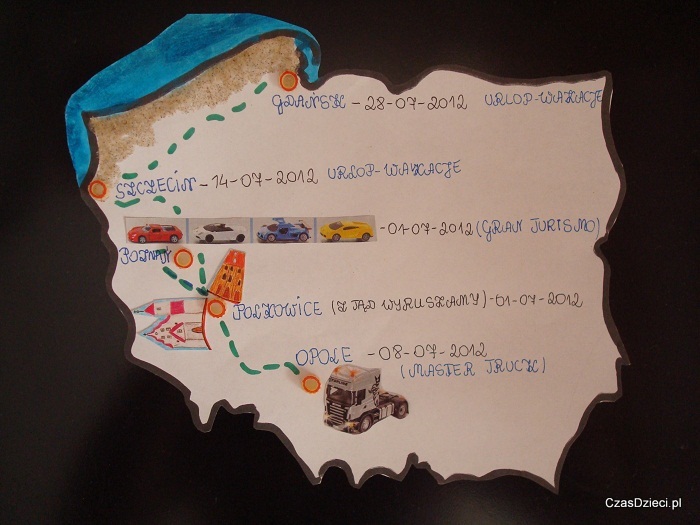 GDAŃSK - 28-07-2012 URLOP-WAKACJE
SZCZECIN - 14-07-2012 URLOP-WAKACJE
-01-07-2012 (GRAN TURISMO)
POZNAŃ
POLKOWICE (Z TĄD WYRUSZAMY) - 01-07-2012
OPOLE - 08-07-2012
(MASTER TRUCK)
CzasDzieci.pl